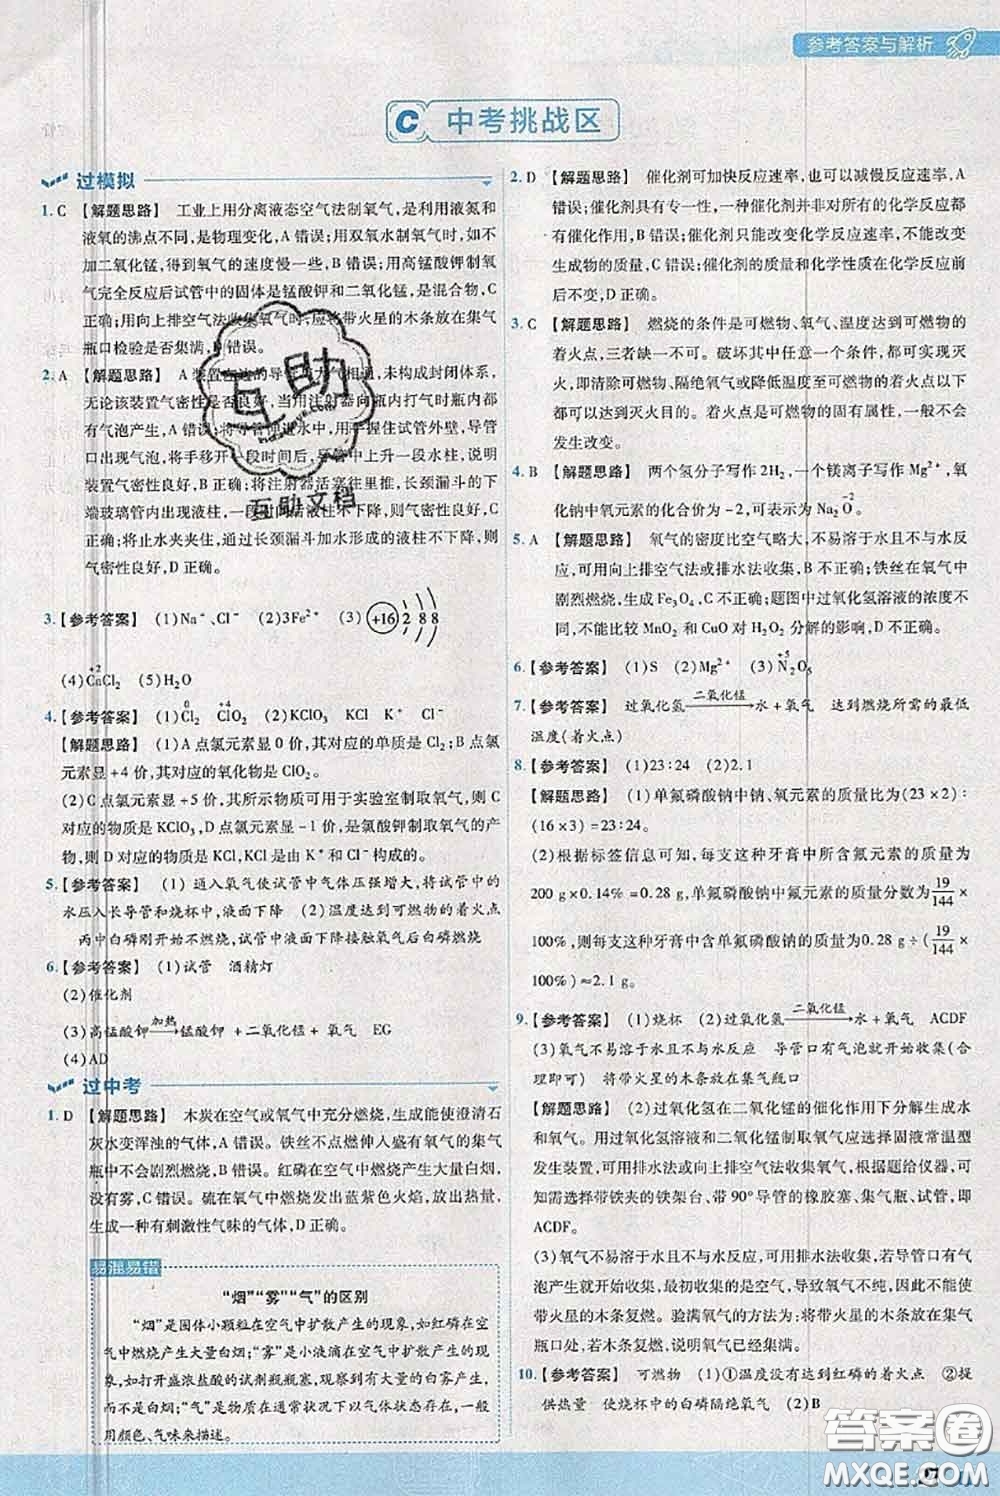 参考答案与解析
C 中考挑战区
过模拟
1. C 【解题思路】 工业上用分离液态空气法制氧气,是利用液氮和
液氧的沸点不同,是物理变化,A错误;用双氧水制氧气时,如不
加二氧化锰,得到氧气的速度慢一些,B错误;用高锰酸钾制氧
气完全反应后试管中的固体是锰酸钾和二氧化锰,是混合物,C
正确;用向上排空气法收集氧气时,应将带火星的木条放在集气
瓶口检验是否集满,D错误。
2. A 【解题思路】 A装置右边的导管与大气相通,未构成封闭体系,
无论该装置气密性是否良好,当用注射器向瓶内打气时瓶内都
有气泡产生,A错误;将导管伸进水中,用手握住试管外壁,导管
口出现气泡,将手移开一段时间后,导管中上升一段水柱,说明
装置气密性良好,B正确;将注射器活塞往里推,长颈漏斗的下
端玻璃管内出现液柱,一段时间后,液柱不下降,则气密性良好,C
正确;将止水夹夹住,通过长颈漏斗加水形成的液柱不下降,则
气密性良好,D正确。
3. 【参考答案】 (1)Na⁺、Cl⁻ (2)3Fe²⁺ (3) +16 2 8 8
(4)CaCl₂ (+2) (5)H₂O
4. 【参考答案】 (1)Cl₂ (0) ClO₂ (+4) (2)KClO₃ KCl K⁺ Cl⁻
【解题思路】 (1)A点氯元素显0价,其对应的单质是Cl₂;B点氯
元素显+4价,其对应的氧化物是ClO₂。
(2)C点氯元素显+5价,其对应的物质可用于实验室制取氧气,则C
对应的物质是KClO₃,D点氯元素显-1价,是氯酸钾制取氧气的产
物,则D对应的物质是KCl,KCl是由K⁺和Cl⁻构成的。
5. 【参考答案】 (1)通入氧气使试管中气体压强增大,将试管中的
水压入长导管和烧杯中,液面下降 (2)温度达到可燃物的着火点
丙中白磷刚开始不燃烧,试管中液面下降接触氧气后白磷燃烧
6. 【参考答案】 (1)试管 酒精灯
(2)催化剂
(3)高锰酸钾 —加热→ 锰酸钾+二氧化锰+氧气 EG
(4)AD
过中考
1. D 【解题思路】 木炭在空气或氧气中充分燃烧,生成能使澄清石
灰水变浑浊的气体,A错误。铁丝不点燃伸入盛有氧气的集气
瓶中不会剧烈燃烧,B错误。红磷在空气中燃烧产生大量白烟,
没有雾,C错误。硫在氧气中燃烧发出蓝紫色火焰,放出热量,
生成一种有刺激性气味的气体,D正确。
易混易错
“烟”“雾”“气”的区别
“烟”是固体小颗粒在空气中扩散产生的现象,如红磷在空
气中燃烧产生大量白烟;“雾”是小液滴在空气中扩散产生的现
象,如打开盛浓盐酸的试剂瓶瓶塞,观察到有大量的白雾产生,
而不是白烟;“气”是物质在通常状况下以气态形式存在,一般
用颜色、气味来描述。
2. D 【解题思路】 催化剂可加快反应速率,也可以减慢反应速率,A
错误;催化剂具有专一性,一种催化剂并非对所有的化学反应都
有催化作用,B错误;催化剂只能改变化学反应速率,不能改变
生成物的质量,C错误;催化剂的质量和化学性质在化学反应前
后不变,D正确。
3. C 【解题思路】 燃烧的条件是可燃物、氧气、温度达到可燃物的
着火点,三者缺一不可。破坏其中任意一个条件,都可实现灭
火,即清除可燃物、隔绝氧气或降低温度至可燃物的着火点以下
都可以达到灭火目的。着火点是可燃物的固有属性,一般不会
发生改变。
4. B 【解题思路】 两个氢分子写作2H₂,一个镁离子写作Mg²⁺,氧
化钠中氧元素的化合价为-2,可表示为Na₂O (-2)。
5. A 【解题思路】 氧气的密度比空气略大,不易溶于水且不与水反
应,可用向上排空气法或排水法收集,B不正确;铁丝在氧气中
剧烈燃烧,生成Fe₃O₄,C不正确;题图中过氧化氢溶液的浓度不
同,不能比较MnO₂和CuO对H₂O₂分解的影响,D不正确。
6. 【参考答案】 (1)S (2)Mg²⁺ (3)N₂O₅ (+5)
7. 【参考答案】 过氧化氢 —二氧化锰→ 水+氧气 达到燃烧所需的最低
温度(着火点)
8. 【参考答案】 (1)23:24 (2)2.1
【解题思路】 (1)单氟磷酸钠中钠、氧元素的质量比为(23×2):
(16×3)=23:24。
(2)根据标签信息可知,每支这种牙膏中所含氟元素的质量为
200 g×0.14%=0.28 g,单氟磷酸钠中氟元素的质量分数为19/144×
100%,则每支这种牙膏中含单氟磷酸钠的质量为0.28 g÷(19/144×
100%)≈2.1 g。
9. 【参考答案】 (1)烧杯 (2)过氧化氢 —二氧化锰→ 水+氧气 ACDF
(3)氧气不易溶于水且不与水反应 导管口有气泡就开始收集(合
理即可) 将带火星的木条放在集气瓶口
【解题思路】 (2)过氧化氢在二氧化锰的催化作用下分解生成水
和氧气。用过氧化氢溶液和二氧化锰制取氧气应选择固液常温型
发生装置,可用排水法或向上排空气法收集氧气,根据题给仪器,可
选择带铁夹的铁架台、带90°导管的橡胶塞、集气瓶、试管,即
ACDF。
(3)氧气不易溶于水且不与水反应,可用排水法收集,若导管口有气
泡产生就开始收集,最初收集的是空气,导致氧气不纯,因此不能使
带火星的木条复燃。验满氧气的方法为:将带火星的木条放在集气
瓶口处,若木条复燃,说明氧气已经集满。
10. 【参考答案】 可燃物 (1)①温度没有达到红磷的着火点 ②提
供热量 使烧杯中的白磷隔绝氧气 (2)B
互助
互助文档
答案圈
MXQE.COM